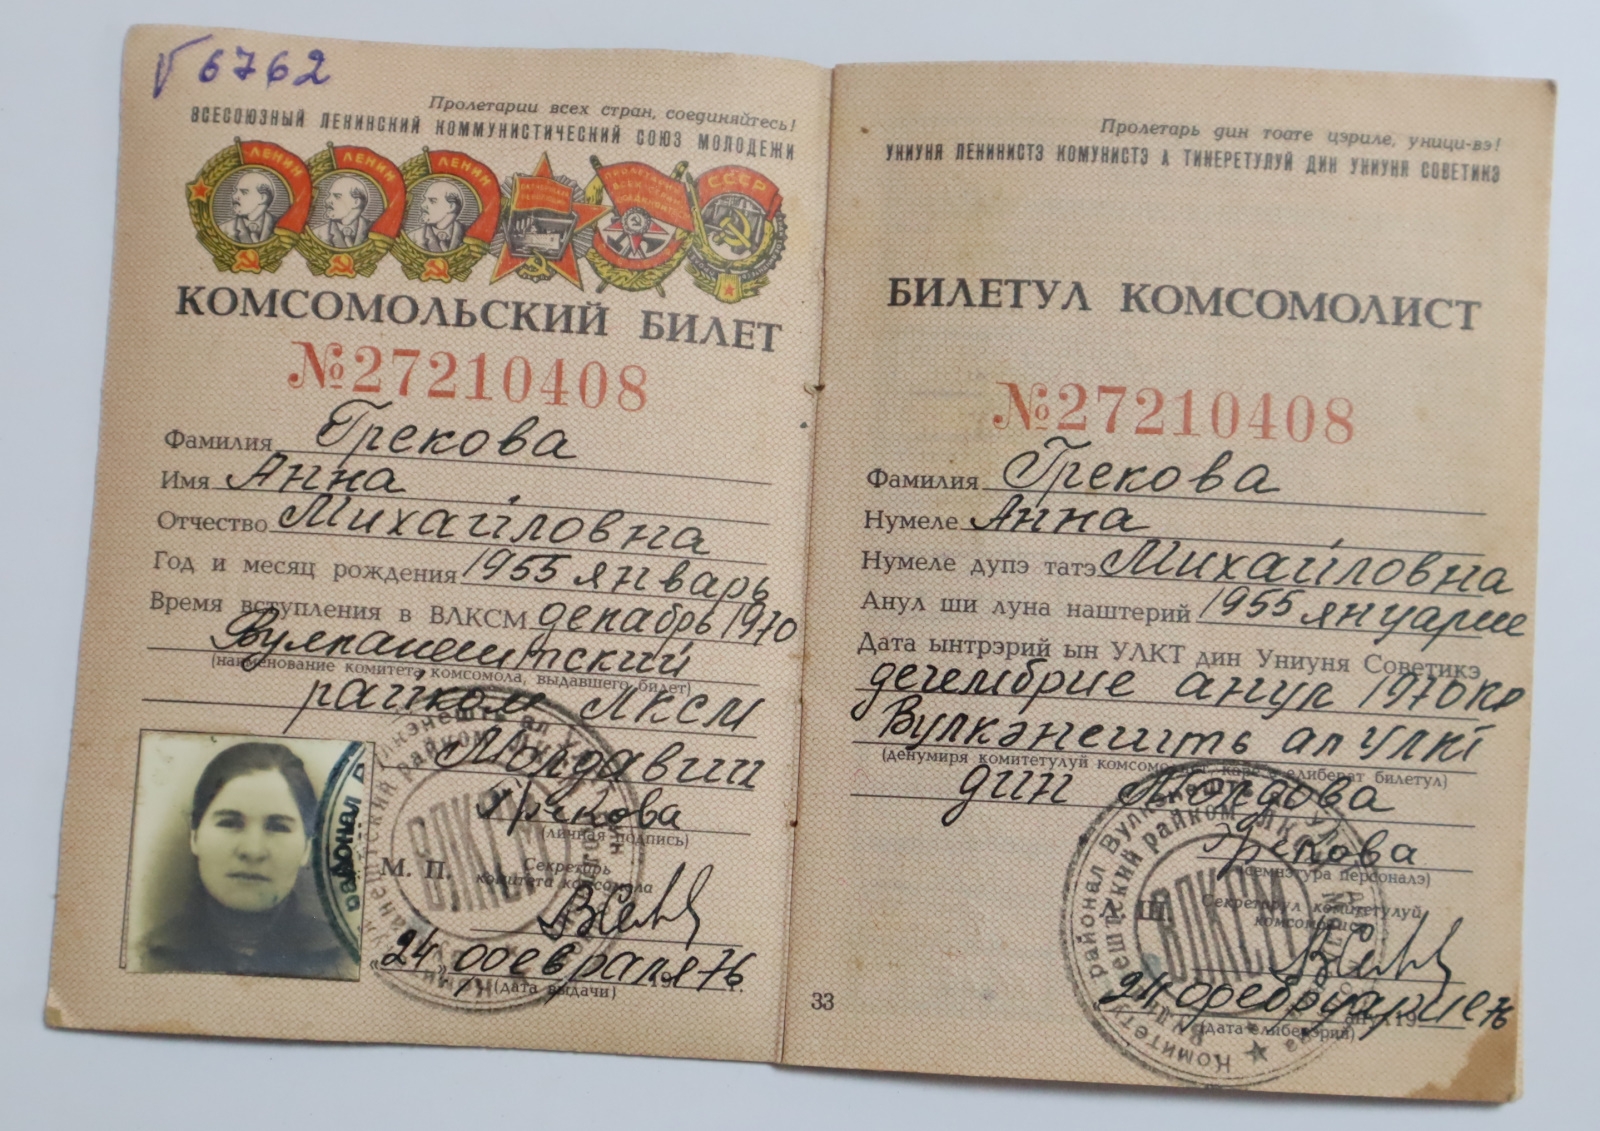 √ 6762
Пролетарии всех стран, соединяйтесь!
ВСЕСОЮЗНЫЙ ЛЕНИНСКИЙ КОММУНИСТИЧЕСКИЙ СОЮЗ МОЛОДЕЖИ
ЛЕНИН ЛЕНИН ЛЕНИН СССР
КОМСОМОЛЬСКИЙ БИЛЕТ
№27210408
Фамилия Грекова
Имя Анна
Отчество Михайловна
Год и месяц рождения 1955 январь
Время вступления в ВЛКСМ декабрь 1970
Вулканештский
(наименование комитета комсомола, выдавшего билет)
райком ЛКСМ
Молдавии
Грекова
(личная подпись)
М. П.
Секретарь
комитета комсомола
ВЛКСМ
„24" февраля 1976 г.
(дата выдачи)
33
Пролетарь дин тоате цэриле, уници-вэ!
УНИУНЯ ЛЕНИНИСТЭ КОМУНИСТЭ А ТИНЕРЕТУЛУЙ ДИН УНИУНЯ СОВЕТИКЭ
БИЛЕТУЛ КОМСОМОЛИСТ
№27210408
Фамилия Грекова
Нумеле Анна
Нумеле дупэ татэ Михайловна
Анул ши луна наштерий 1955 януарие
Дата ынтрэрий ын УЛКТ дин Униуня Советикэ
дечембрие анул 1970
Вулкэнешть ал УЛКТ
(денумиря комитетулуй комсомолист, каре а елиберат билетул)
дин Молдова
Грекова
(семнэтура персоналэ)
Л. Ш.
Секретарул комитетулуй
комсомолист
ВЛКСМ
„24" фебруарие 76
анул 19
(дата елиберэрий)